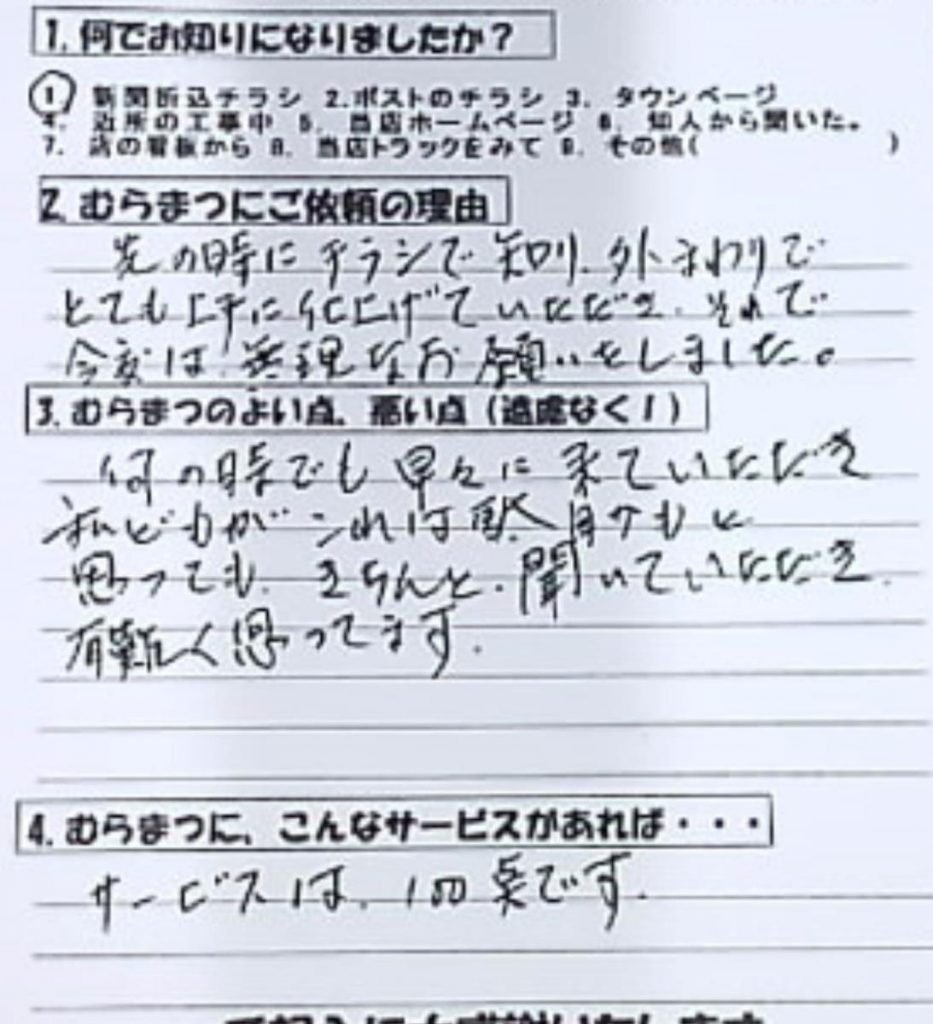 1. 何でお知りになりましたか？
1. 新聞折込チラシ 2.ポストのチラシ 3. タウンページ
4. 近所の工事中 5. 当店ホームページ 6. 知人から聞いた。
7. 店の看板から 8. 当店トラックをみて 9. その他( )
2. むらまつにご依頼の理由
先の時にチラシで知り、外まわりで
とても上手に仕上げていただき、それで
今度は無理なお願いをしました。
3. むらまつのよい点、悪い点（遠慮なく！）
何の時でも早々に来ていただき
私どもが これは駄目かもと
思っても、きちんと、聞いていただき、
有難く思ってます。
4. むらまつに、こんなサービスがあれば・・・
サービスは、100点です。